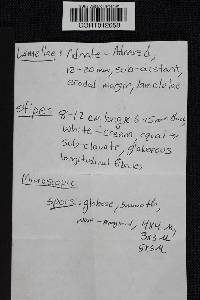 CORT012658
Lamellae: Adnate - Adnexed,
12-20mm, sub-distant,
eroded margin, lamelulae
Stipe: 8-12 cm long x 5-15mm
white - cream, equal to
sub-clavate, glabrous
longitudinal fibrils
Microscopic
spors - globose, smooth,
non- 4x4 µ,
3x3 µ
5x5 µ